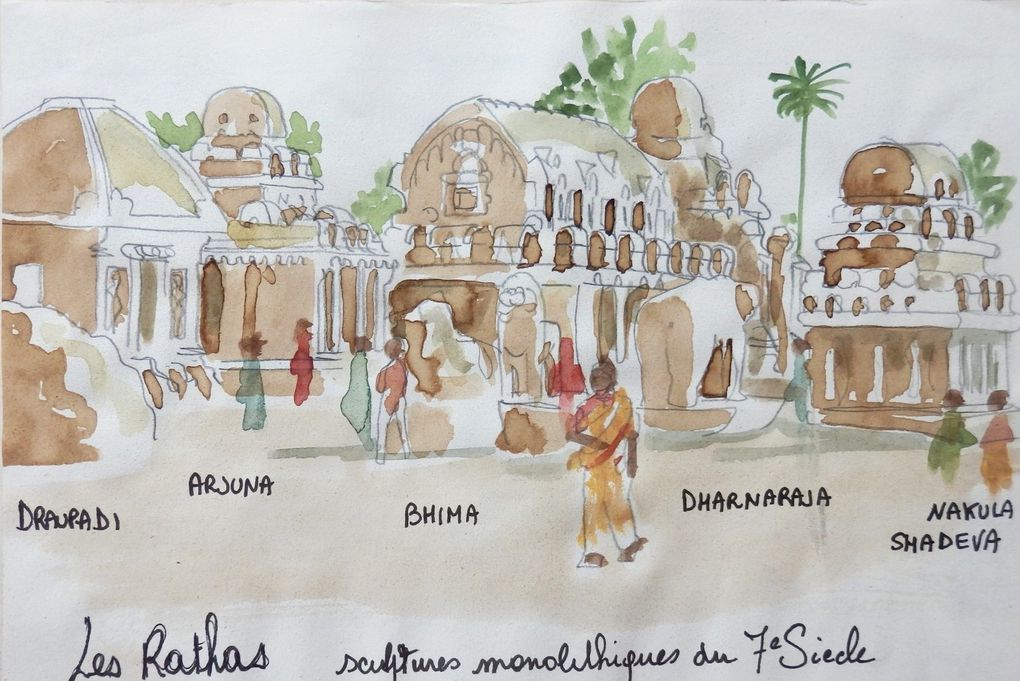 DRAUPADI
ARJUNA
BHIMA
DHARNARAJA
NAKULA
SHADEVA
Les Rathas sculptures monolithiques du 7e Siecle